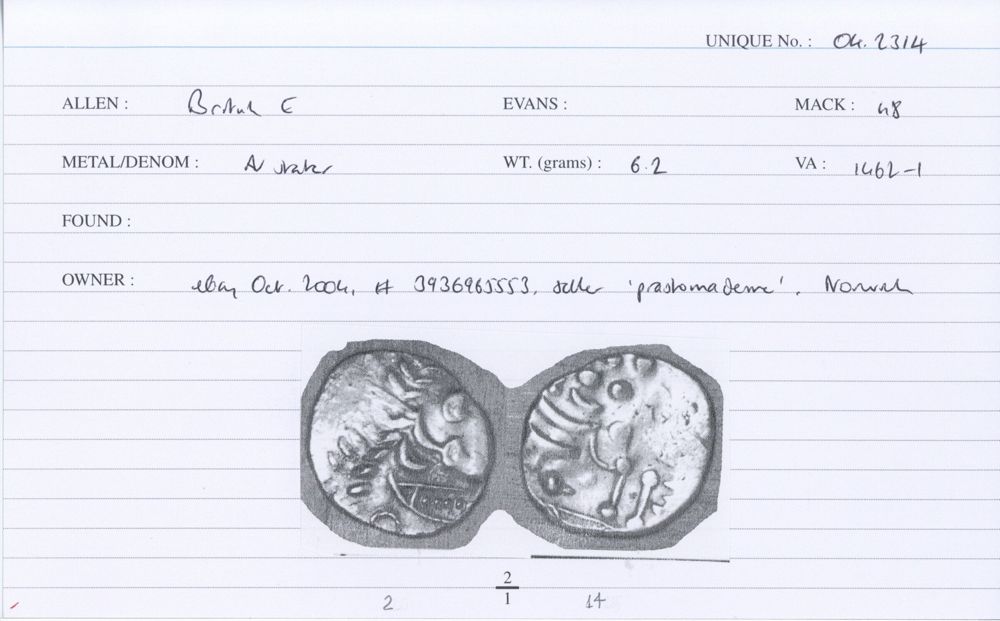 UNIQUE No. : 04.2314
ALLEN : British E EVANS : MACK : 48
METAL/DENOM : AV stater WT. (grams) : 6.2 VA : 1462-1
FOUND :
OWNER : ebay Oct. 2004, # 3936965553, seller 'prastomademe'. Norwich
2
1
2 14